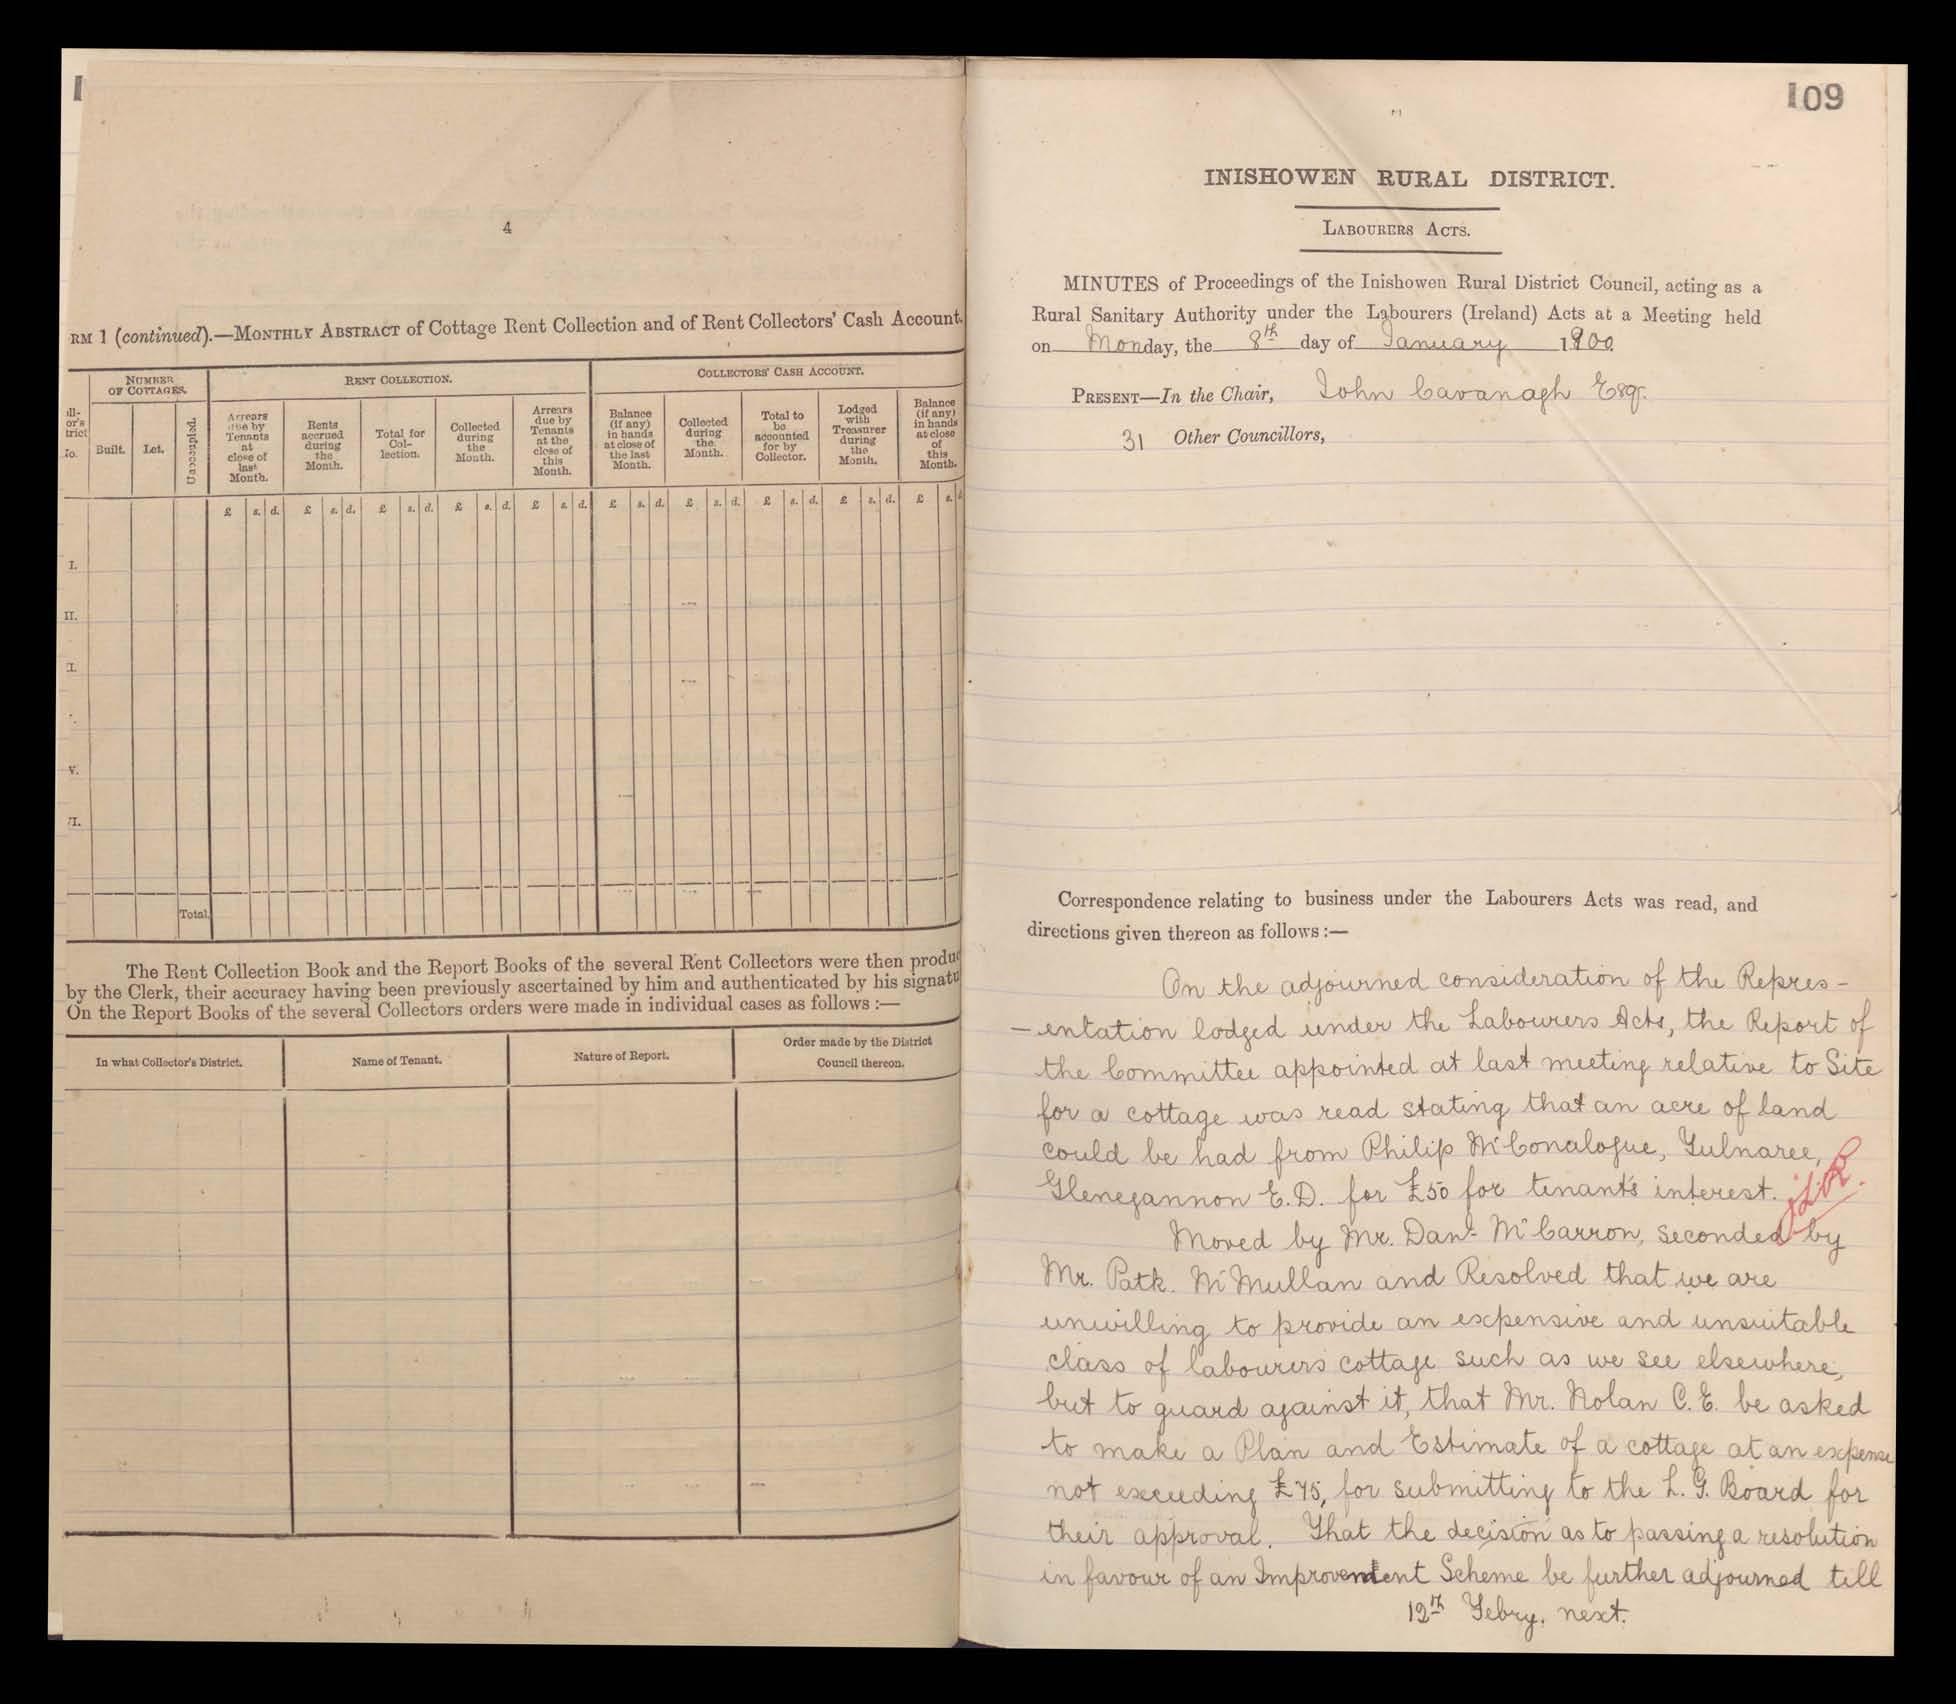 4
RM 1 (continued).—MONTHLY ABSTRACT of Cottage Rent Collection and of Rent Collectors' Cash Account.
NUMBER OF COTTAGES.
RENT COLLECTION.
COLLECTORS' CASH ACCOUNT.
Built.
Let.
Unoccupied.
Arrears due by Tenants at close of last Month.
Rents accrued during the Month.
Total for Collection.
Collected during the Month.
Arrears due by Tenants at the close of this Month.
Balance (if any) in hands at close of the last Month.
Collected during the Month.
Total to be accounted for by Collector.
Lodged with Treasurer during the Month.
Balance (if any) in hands at close of this Month.
£ s. d. £ s. d. £ s. d. £ s. d. £ s. d. £ s. d. £ s. d. £ s. d. £ s. d. £ s. d.
I.
II.
I.
V.
I.
Total.
The Rent Collection Book and the Report Books of the several Rent Collectors were then produ
by the Clerk, their accuracy having been previously ascertained by him and authenticated by his signatu
On the Report Books of the several Collectors orders were made in individual cases as follows :—
In what Collector's District.
Name of Tenant.
Nature of Report.
Order made by the District Council thereon.
109
INISHOWEN RURAL DISTRICT.
LABOURERS ACTS.
MINUTES of Proceedings of the Inishowen Rural District Council, acting as a
Rural Sanitary Authority under the Labourers (Ireland) Acts at a Meeting held
on Monday, the 8th day of January 1900.
PRESENT—In the Chair, John Cavanagh Esqr.
31 Other Councillors,
Correspondence relating to business under the Labourers Acts was read, and
directions given thereon as follows :—
On the adjourned consideration of the Repres-
-entation lodged under the Labourers Acts, the Report of
the Committee appointed at last meeting relative to Site
for a cottage was read stating that an acre of land
could be had from Philip McConalogue, Gulnaree,
Glenegannon E.D. for £50 for tenant's interest.
Moved by Mr. Danl. McCarron, seconded by
Mr. Patk. McMullan and Resolved that we are
unwilling to provide an expensive and unsuitable
class of labourers cottage such as we see elsewhere,
but to guard against it, that Mr. Nolan C.E. be asked
to make a Plan and Estimate of a cottage at an expense
not exceeding £75, for submitting to the L. G. Board for
their approval. That the decision as to passing a resolution
in favour of an Improvement Scheme be further adjourned till
12th Febry. next.